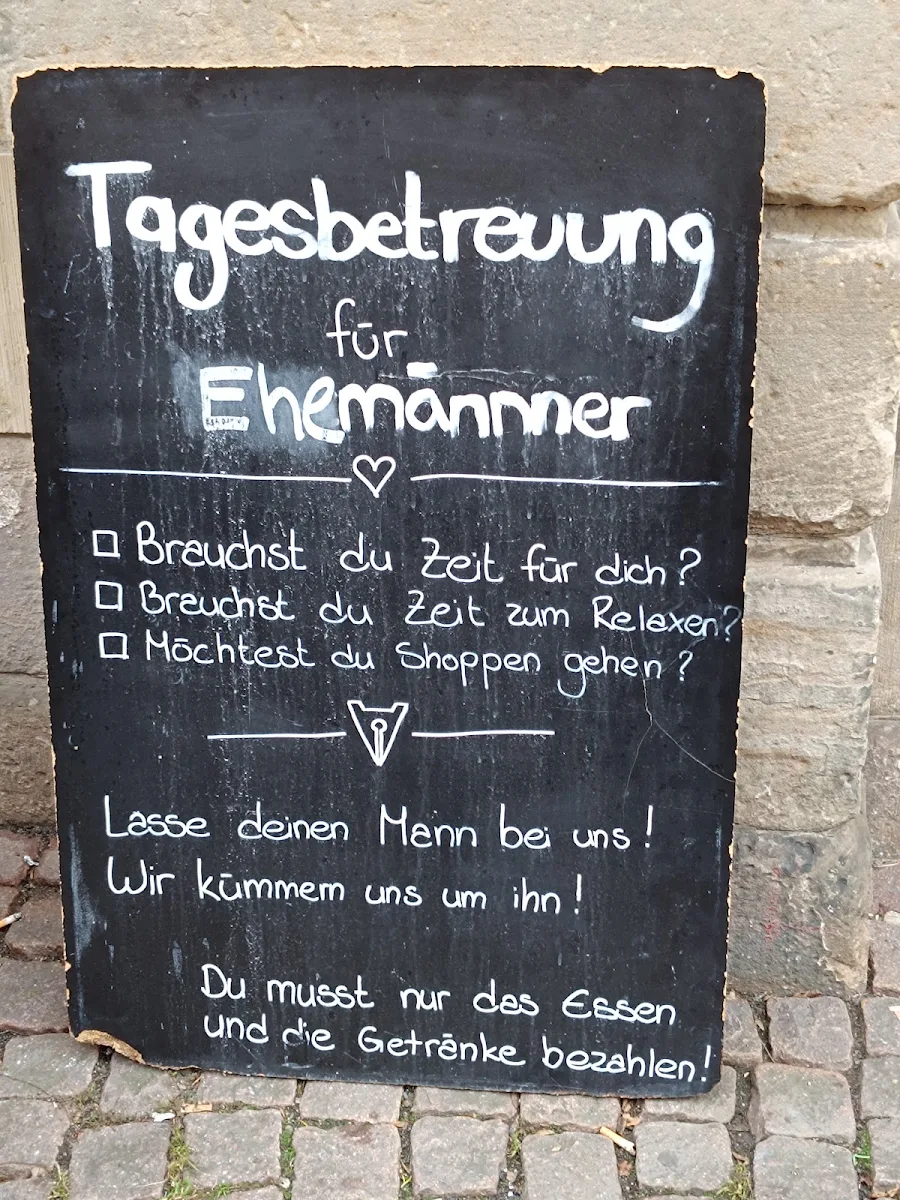 Tagesbetreuung
für
Ehemännner
□ Brauchst du Zeit für dich?
□ Brauchst du Zeit zum Relaxen?
□ Möchtest du Shoppen gehen?
Lasse deinen Mann bei uns!
Wir kümmern uns um ihn!
Du musst nur das Essen
und die Getränke bezahlen!